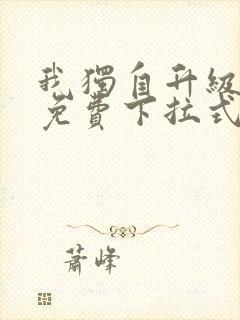 我獨自升級
免費下拉式
蕭峰